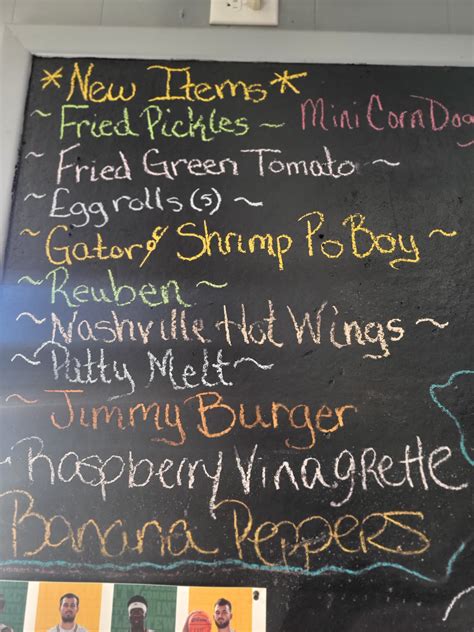 *New Items*
~Fried Pickles~ Mini Corn Dog
~Fried Green Tomato~
~Eggrolls(5)~
~Gator & Shrimp Po Boy~
~Reuben~
~Nashville Hot Wings~
~Patty Melt~
~Jimmy Burger
~Raspberry Vinagrette
Banana Peppers